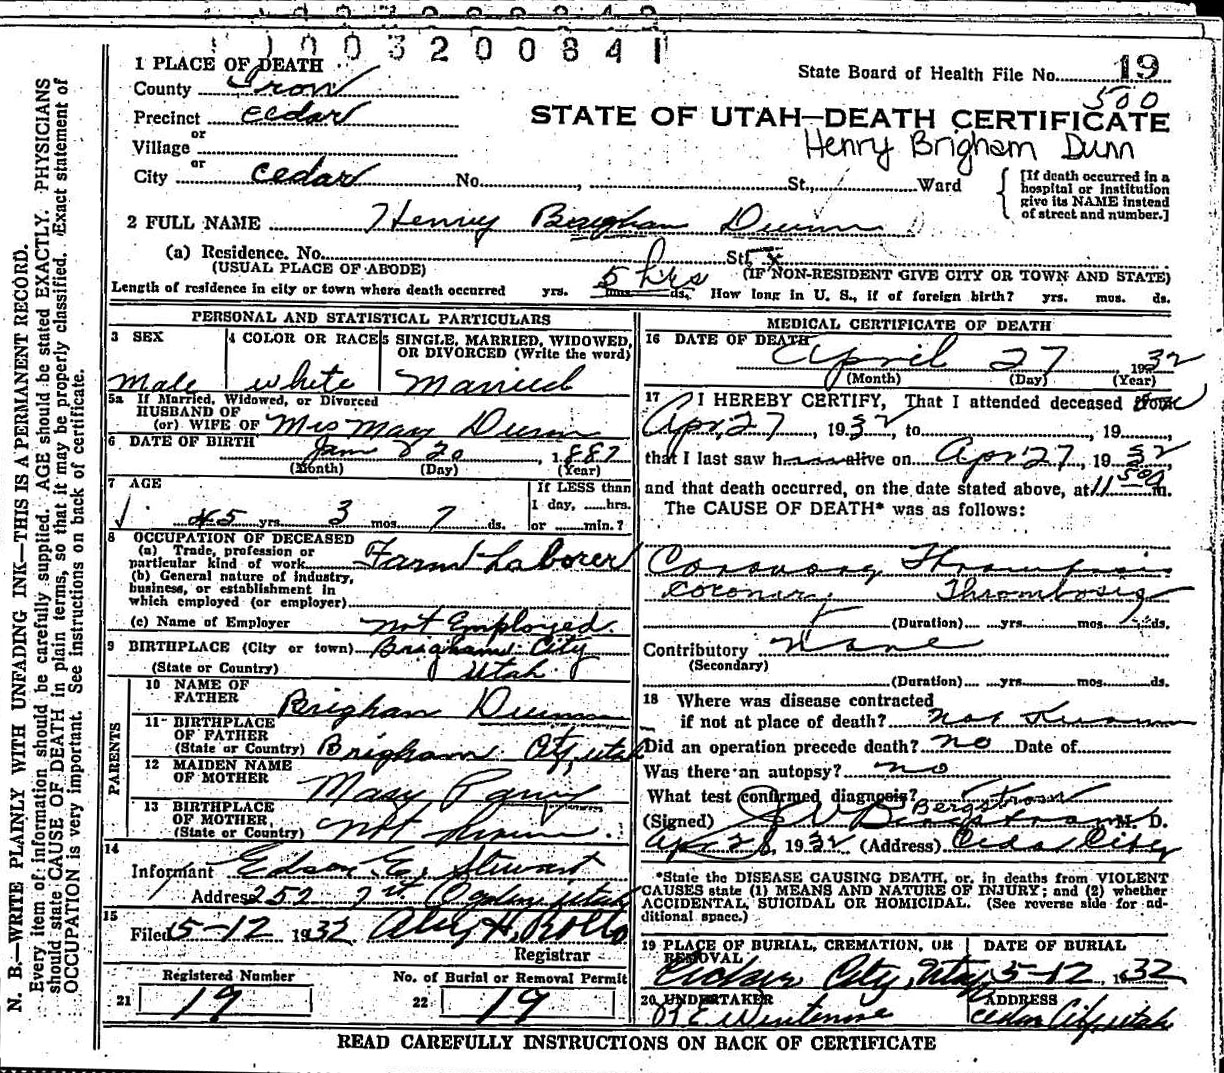 1003200841
1 PLACE OF DEATH
County Iron
State Board of Health File No. 19
500
Precinct Cedar
STATE OF UTAH—DEATH CERTIFICATE
or
Village
Henry Brigham Dunn
or
City Cedar No. , St., Ward
[If death occurred in a
hospital or institution
give its NAME instead
of street and number.]
2 FULL NAME Henry Brigham Dunn
(a) Residence. No. St.
(USUAL PLACE OF ABODE) (IF NON-RESIDENT GIVE CITY OR TOWN AND STATE)
Length of residence in city or town where death occurred yrs. mos. ds. 5 hrs How long in U. S., if of foreign birth? yrs. mos. ds.
PERSONAL AND STATISTICAL PARTICULARS
3 SEX
Male
4 COLOR OR RACE
white
5 SINGLE, MARRIED, WIDOWED,
OR DIVORCED (Write the word)
Married
5a If Married, Widowed, or Divorced
HUSBAND OF
(or) WIFE OF Mrs May Dunn
6 DATE OF BIRTH
Jan 20 1887
(Month) (Day) (Year)
7 AGE
45 yrs. 3 mos. 7 ds.
If LESS than
1 day, hrs.
or min.?
8 OCCUPATION OF DECEASED
(a) Trade, profession or
particular kind of work Farm Laborer
(b) General nature of industry,
business, or establishment in
which employed (or employer)
(c) Name of Employer Not Employed.
9 BIRTHPLACE (City or town) Brigham City
(State or Country) Utah
PARENTS
10 NAME OF
FATHER Brigham Dunn
11 BIRTHPLACE
OF FATHER
(State or Country) Brigham City, Utah
12 MAIDEN NAME
OF MOTHER Mary
13 BIRTHPLACE
OF MOTHER,
(State or Country) Not Known.
14
Informant Edson E. Stewart
Address 252 7 st. Ogden Utah
15
Filed 5-12 1932 Aley H. Rollo
Registrar
Registered Number
21 19
No. of Burial or Removal Permit
22 19
MEDICAL CERTIFICATE OF DEATH
16 DATE OF DEATH
April 27 1932
(Month) (Day) (Year)
17 I HEREBY CERTIFY, That I attended deceased from
Apr. 27, 1932, to , 19 ,
that I last saw h alive on Apr 27, 1932
and that death occurred, on the date stated above, at 11 50 m.
The CAUSE OF DEATH* was as follows:
Coronary Thrombosis
Coronary Thrombosis
(Duration) yrs. mos. ds.
Contributory None
(Secondary)
(Duration) yrs. mos. ds.
18 Where was disease contracted
if not at place of death? not known
Did an operation precede death? no Date of
Was there an autopsy? no
What test confirmed diagnosis?
Bergstrom
(Signed) J W Bergstrom M. D.
Apr 28, 1932 (Address) Cedar City
*State the DISEASE CAUSING DEATH, or, in deaths from VIOLENT
CAUSES state (1) MEANS AND NATURE OF INJURY; and (2) whether
ACCIDENTAL, SUICIDAL OR HOMICIDAL. (See reverse side for ad-
ditional space.)
19 PLACE OF BURIAL, CREMATION, OR
REMOVAL
Cedar City, Utah
DATE OF BURIAL
5-12, 1932
20 UNDERTAKER
ADDRESS
Cedar City, Utah
READ CAREFULLY INSTRUCTIONS ON BACK OF CERTIFICATE
N. B.—WRITE PLAINLY WITH UNFADING INK—THIS IS A PERMANENT RECORD.
Every item of information should be carefully supplied. AGE should be stated EXACTLY. PHYSICIANS
should state CAUSE OF DEATH in plain terms, so that it may be properly classified. Exact statement of
OCCUPATION is very important. See instructions on back of certificate.